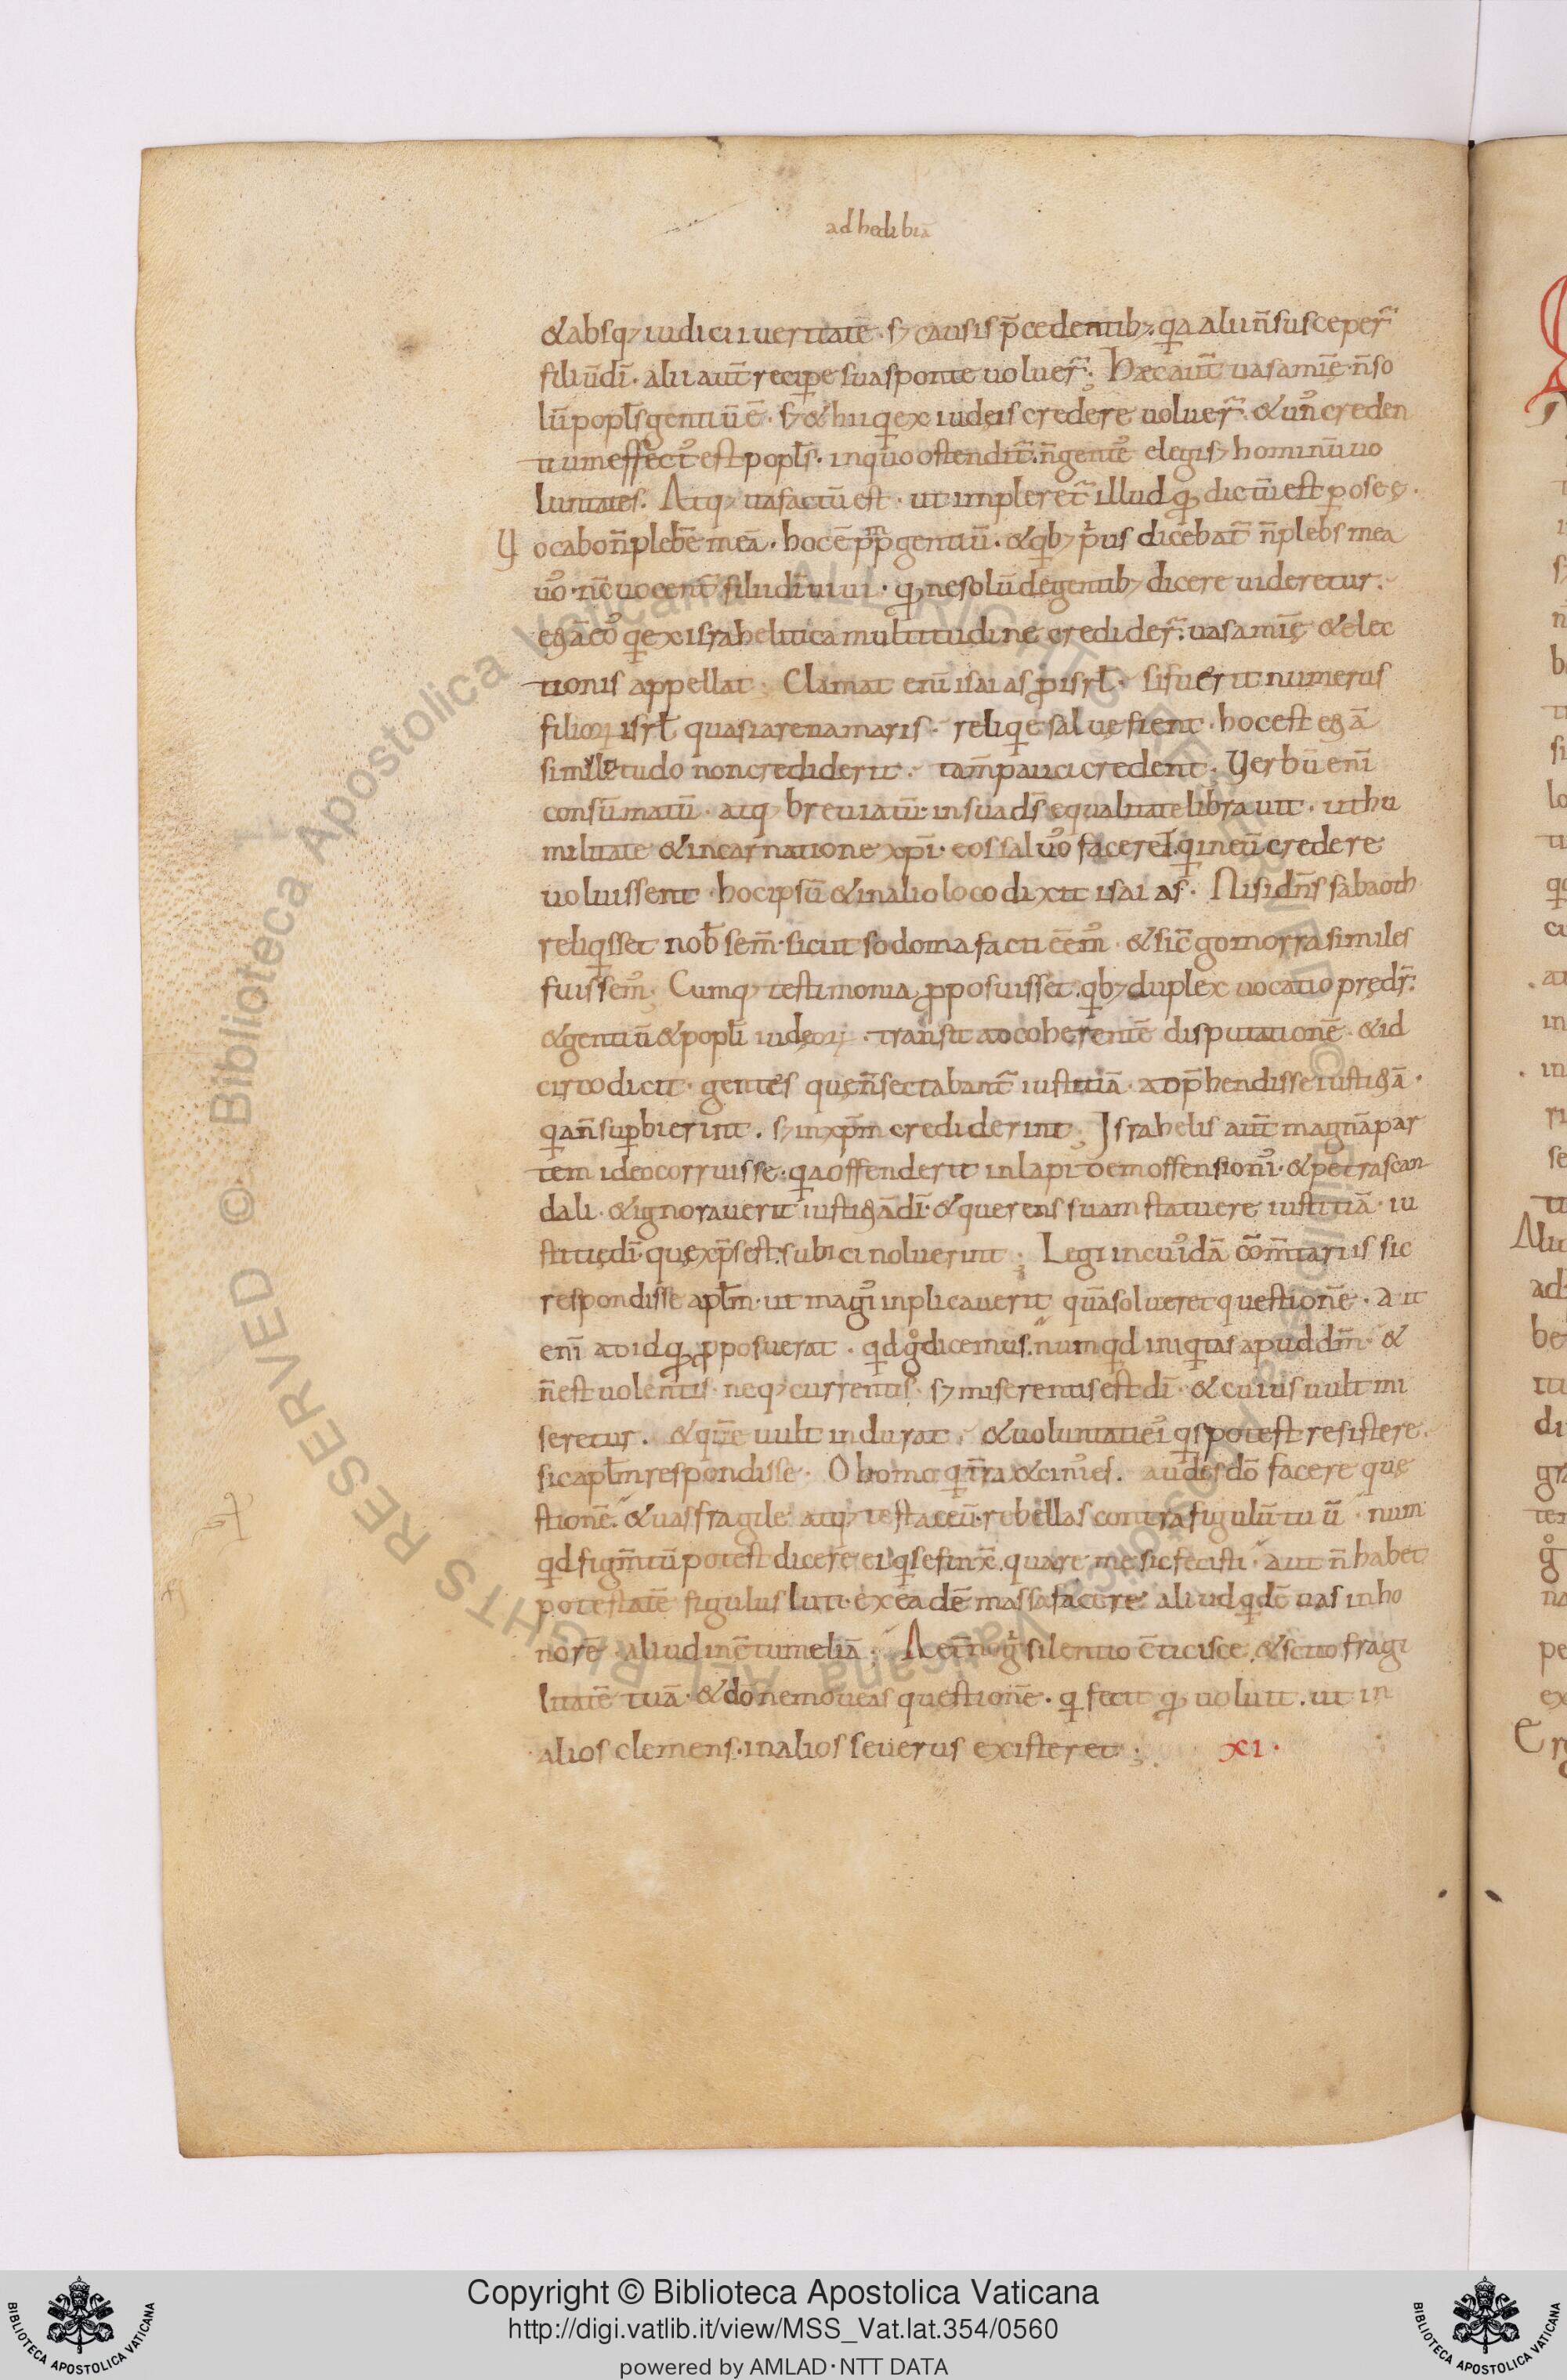 ad hedibiā
&absq; iudicii ueritate᷎ · s; causis p̄cedentib; · qa alii n̄ susceper̃
filiū dī · alii aut̄ recipe sua sponte uoluer̃ · Hæc aut̄ uasa mīę · n̄ so
lū popl̄s gentiū ē · s; & hii qi ex iudęis credere uoluer̃ · & un᷒ creden
tium effect᷒ est popl̄s · in quo ostendit̃ · n̄ gente᷎ elegi s; hominū uo
luntates. Atq; ita factū est · ut impleret̃ illud qđ dictū est p osee ·
Vocabo n̄ plebē meā · hoc ē ppm̄ gentiū · & qib; pⁱus dicebat̃ n̄ plebs mea
uo᷒ · nc̄ uocent̃ filii dī uiui · qđ ne solū de gentib; dicere uideretur ·
etiā eo᷒ qi ex israhelitica multitudine credider̃ · uasa mīę & elec
tionis appellat · Clamat enī isaias p isrl̄ · si fuerit numerus
filioꝝ isrl̄ quasi arena maris · reliqię saluę fient · hoc est etiā
similetudo non crediderit · tam̄ pauci credent · Verbū enī
consūmatū · atq; breuiatū · in sua ds̄ equalitate librauit · ut hu
militate & incarnatione xp̄i · eos saluo᷒ faceret · qi in eū credere
uoluissent · hoc ipsū & in alio loco dixit isaias · Nisi dn̄s sabaoth
reliqisset nob̄ sem̄ · sicut sodoma facti eēm᷒ · & sic̄ gomorra similes
fuissem᷒ · Cumq; testimonia pposuisset · qib; duplex uocatio prędr̄ ·
& gentiū & popl̄i iudęoꝝ · transit ad coherentē disputationē · & id
circo dicit · gentes que n̄ sectabant̃ iustitiā · adp̄hendisse iustitiā ·
qia n̄ supbierint · s; in xp̄m crediderint · Israhelis aut̄ magnā par
tem ideo corruisse · qia offenderit in lapidem offensionī · & petra scan
dali · & ignorauerit iustitiā dī · & querens suam statuere iustitiā · iu
stitię dī · quę xp̄s est · subici noluerint · Legi in cui᷒dā cōmtariis sic
respondisse aplm̄ · ut magⁱ inplicauerit quā solueret questionē · ait
enī ad id qđ pposuerat · qid g̊ dicemus · numqid iniqitas apud dm̄ · &
n̄ est uolentis · neq; currentis · s; miserentis est dī · & cuius uult mi
seretur · & quē uult indurat · & uoluntati ei᷒ qis potest resistere ·
sic aplm̄ respondisse · O homo qi tr̄a & cinⁱ es · audes dō facere quę
stionē · & uas fragile atq; testaceū · rebellas contra figulū tuū · num
qid figm̄tū potest dicere ei qi se finx̄ · quare me sic fecisti · aut n̄ habet
potestatē figulus luti · ex eadē massa facere aliud qidē uas in ho
norē · aliud in c̄tumeliā · Aetn̄o gⁱ silentio c̄ticisce · & scito fragi
litatē tuā · & dō ne moueas questionē · qi fecit qđ uoluit · ut in
alios clemens · in alios seuerus existeret ·
XI ·
Copyright © Biblioteca Apostolica Vaticana
http://digi.vatlib.it/view/MSS_Vat.lat.354/0560
powered by AMLAD·NTT DATA